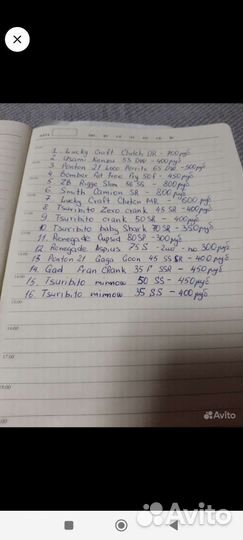 1. Lucky Craft Clutch DR - 700 руб
2. Usami Kanzou 55 DW - 400 руб
3. Ponton 21 Loco Perrito 65 DW - 500 руб
4. Bomber Fat Free Fry 50f - 450 руб
5. ZB Rigge Slim 50 SS - 800 руб
6. Smith Camion SR - 800 руб
7. Lucky Craft Clutch MR - 600 руб
8. Tsuribito Zero crank 45 SR - 400 руб
9. Tsuribito crank 50 SR - 400 руб
10. Tsuribito baby Shark 70 SR - 350 руб
11. Renegade Cupsid 80 SP - 300 руб
12. Renegade Aspius 75 S - 2шт - по 300 руб
13. Ponton 21 Gaga Goon 45 SSSR - 400 руб
14. Gad Fran CRank 35 F SSR - 450 руб
15. Tsuribito minnow 50 SS - 450 руб
16. Tsuribito minnow 35 SS - 400 руб
17:00
18:00
Avito
Avito